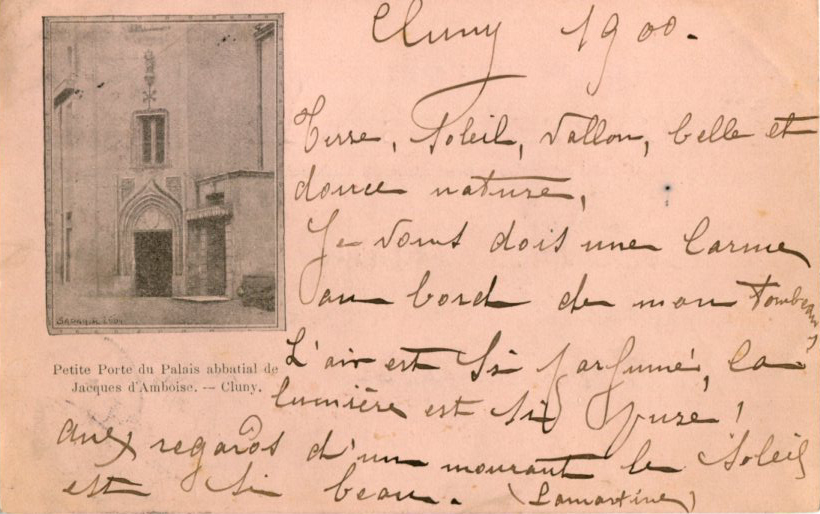 Cluny 1900.
Terre, Soleil, Vallon, belle et
douce nature,
Je vous dois une larme
au bord de mon tombeau,
L'air est si parfumé, la
lumière est si pure!
aux regards d'un mourant le Soleil
est si beau. (Lamartine)
Petite Porte du Palais abbatial de
Jacques d'Amboise. — Cluny.